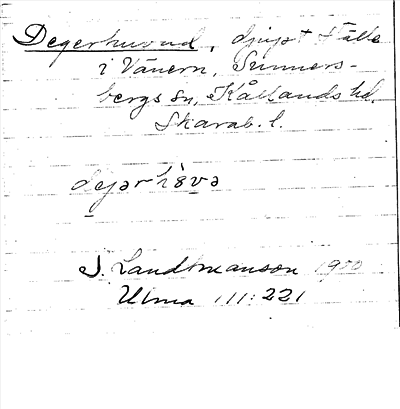 Degerhuvud, djupt ställe
i Vänern, Sunners-
bergs sn, Kållands hd,
Skarab. l.
S. Landtmanson 1900
Ulma 111:221